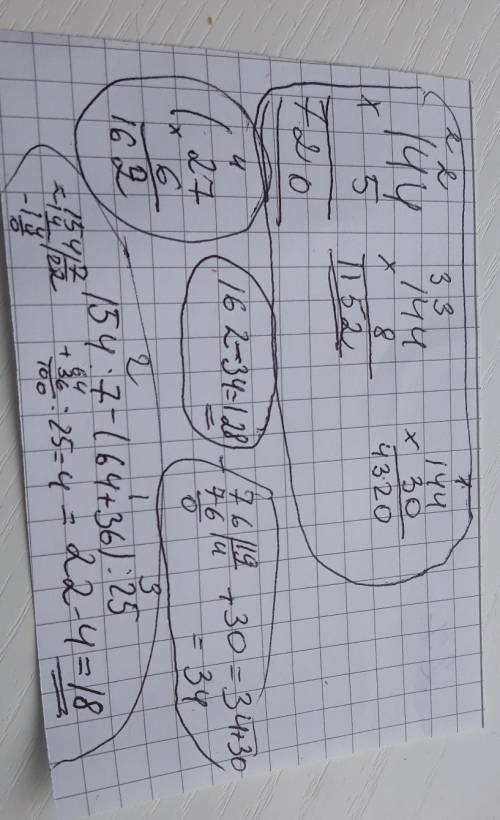 2 2
144
x 5
720
3 3
144
x 8
1152
1
144
x 30
4320
4
27
x 6
162
162-34=128
76|19
76|4
0
+30=34+30
=34
2 1 3
154:7-(64+36):25
154|7
14|22
-14
0
64
+36
100
:25=4=22-4=18